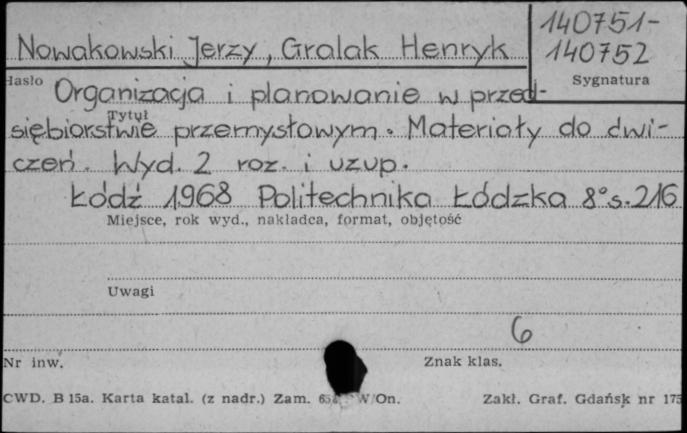 140751-
Nowakowski Jerzy, Gralak Henryk 140752
Hasło Sygnatura
Organizacja i planowanie w przed-
Tytuł
siębiorstwie przemysłowym. Materiały do ćwi-
czeń. Wyd. 2 roz. i uzup.
Łódź 1968 Politechnika Łódzka 8° s. 216
Miejsce, rok wyd., nakładca, format, objętość
Uwagi
6
Nr inw. Znak klas.
CWD. B 15a. Karta katal. (z nadr.) Zam. W/On. Zakł. Graf. Gdańsk nr 175